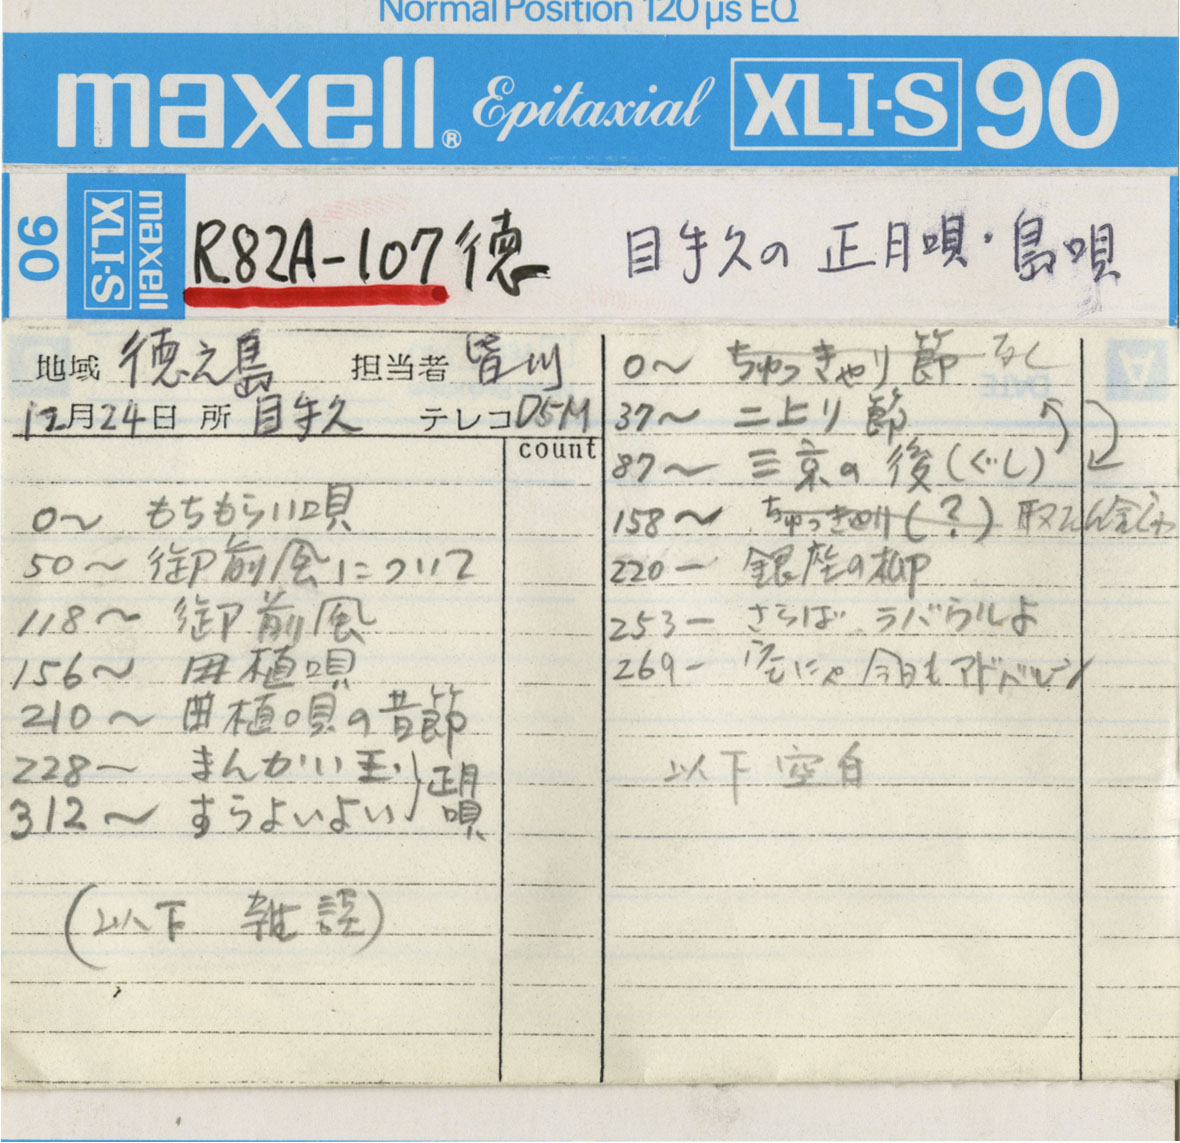 Normal Position 120 µs EQ
maxell® Epitaxial XLI-S 90
90 XLI-S maxell R82A-107 徳 目手久の 正月唄・島唄
地域 徳之島 担当者 皆川
12月24日 所 目手久 テレコ D5M
count
0〜 もちもらい唄
50〜 御前風について
118〜 御前風
156〜 田植唄
210〜 田植唄の昔節
228〜 まんかい玉
312〜 すらよいよい
正月唄
(以下 雑談)
0〜 ちゅっきゃり節 なし
37〜 二上り節
87〜 三京の後(ぐし)
158〜 ちゅっきゃり(?)
220ー 銀座の柳
253ー さらば ラバウルよ
269ー 今日も アドバルーン
以下 空白